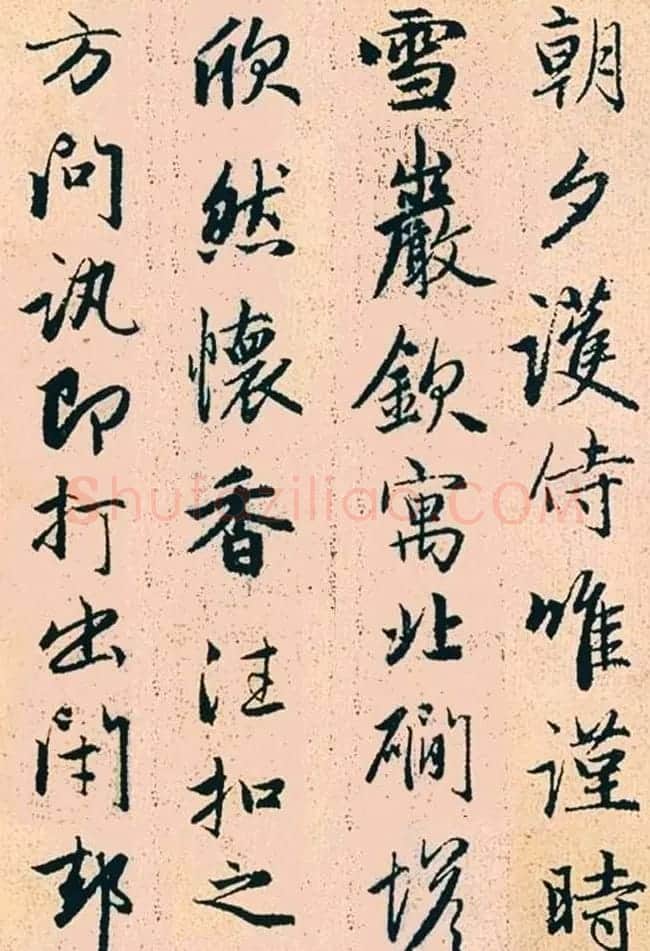 朝夕護侍唯謹時
雪巖欽寓北磵塔
欣然懷香往扣之
方問訊即打出閉却
Shufaziliao.COM